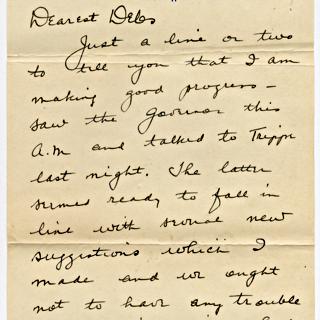 Dearest Debs
Just a line or two
to tell you that I am
making good progress –
saw the Governor this
A.M and talked to Tripp
last night. The latter
seemed ready to fall in
line with several new
suggestions which I
made and we ought
not to have any trouble